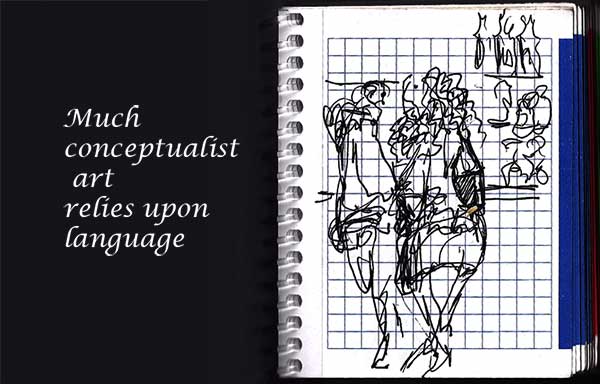 Much
conceptualist
art
relies upon
language